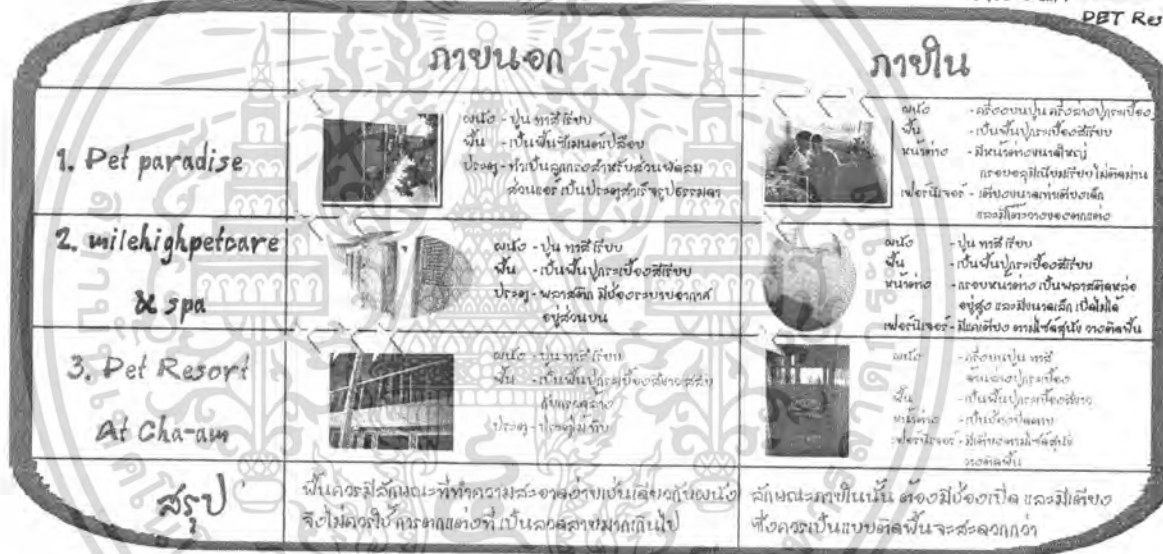 PET Res
ภายนอก
ภายใน
1. Pet paradise
ผนัง - ปูน ทาสีเรียบ
พื้น - เป็นพื้นซีเมนต์เปลือย
ประตู - ทำเป็นลูกกรงสำหรับส่วนพัดลม
ส่วนแอร์เป็นประตูสำเร็จรูปธรรมดา
ผนัง - ครึ่งบนปูน ครึ่งล่างปูกระเบื้อง
พื้น - เป็นพื้นปูกระเบื้องสีเรียบ
หน้าต่าง - มีหน้าต่างขนาดใหญ่
กรอบอลูมิเนียมเรียบ ไม่ติดม่าน
เฟอร์นิเจอร์ - เตียงขนาดเท่าเตียงเด็ก
และมีโต๊ะวางของตกแต่ง
2. milehighpetcare
& spa
ผนัง - ปูน ทาสีเรียบ
พื้น - เป็นพื้นปูกระเบื้องสีเรียบ
ประตู - พลาสติก มีช่องระบายอากาศ
อยู่ส่วนบน
ผนัง - ปูน ทาสีเรียบ
พื้น - เป็นพื้นปูกระเบื้องสีเรียบ
หน้าต่าง - กรอบหน้าต่าง เป็นพลาสติคหล่อ
อยู่สูง และมีขนาดเล็ก เปิดไม่ได้
เฟอร์นิเจอร์ - มีแค่เตียง ตามไซด์สุนัข วางติดพื้น
3. Pet Resort
At Cha-am
ผนัง - ปูน ทาสีเรียบ
พื้น - เป็นพื้นปูกระเบื้องสีขาวสลับ
ประตู - ประตูไม้ทึบ
ผนัง - ครึ่งบนปูน ทาสี
ครึ่งล่างปูกระเบื้อง
พื้น - เป็นพื้นปูกระเบื้องสีขาว
หน้าต่าง - เป็นช่องเปิด
เฟอร์นิเจอร์ - มีเตียงตามไซด์สุนัข
วางติดพื้น
สรุป
พื้นควรมีลักษณะที่ทำความสะอาดง่ายเช่นเดียวกับผนัง
จึงไม่ควรใช้การตกแต่งที่เป็นลวดลายมากเกินไป
ลักษณะภายในนั้น ต้องมีช่องเปิด และมีเตียง
ซึ่งควรเป็นแบบติดพื้นจะสะดวกกว่า